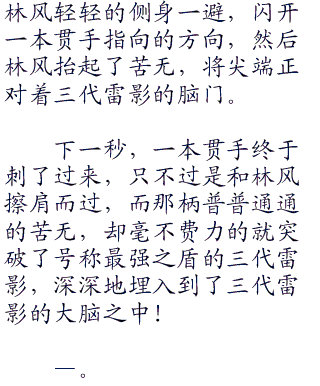 林风轻轻的侧身一避，闪开
一本贯手指向的方向，然后
林风抬起了苦无，将尖端正
对着三代雷影的脑门。
下一秒，一本贯手终于
刺了过来，只不过是和林风
擦肩而过，而那柄普普通通
的苦无，却毫不费力的就突
破了号称最强之盾的三代雷
影，深深地埋入到了三代雷
影的大脑之中！
一。